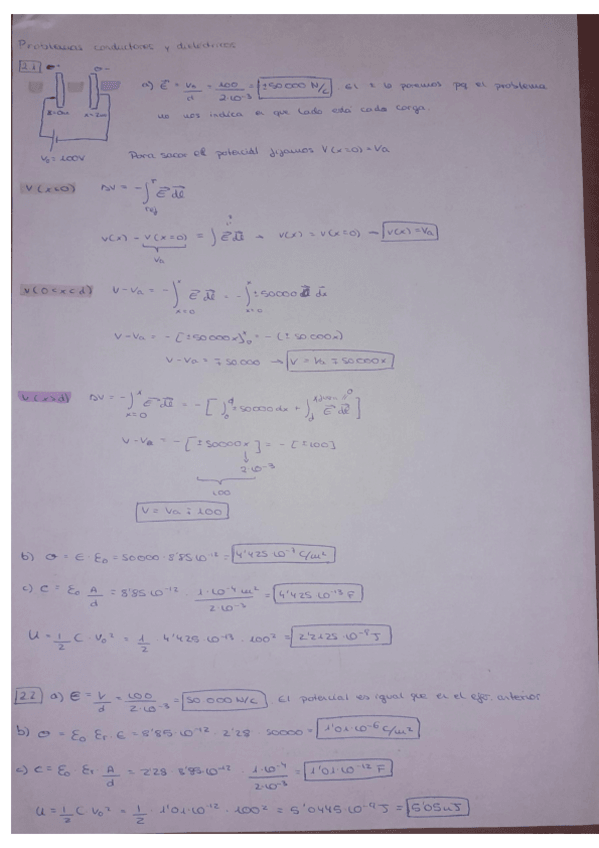 Problemas conductores y dieléctricos
2.1 σ+ σ-
x=0m x=2m
V₀ = 100V
a) E⃗ = V₀/d = 100/2·10⁻³ = ±50000 N/C. El ± lo ponemos pq el problema
no nos indica en que lado está cada carga.
Para sacar el potencial fijamos V(x=0) = Va
V(x<0) ΔV = -∫ E⃗ dl⃗
V(x) - V(x=0) = ∫ E⃗ dl⃗ → V(x) = V(x=0) → V(x) = Va
Va
V(0<x<d) V-Va = -∫ₓ₌₀ˣ E⃗ dl⃗ = -∫ₓ₌₀ˣ ±50000 dx⃗
V-Va = -[±50000x]₀ˣ = -(±50.000x)
V-Va = ∓50000 → V = Va ∓50000x
V(x>d) ΔV = -∫ₓ₌₀ˣ E⃗ dl⃗ = -[∫₀ᵈ ±50000dx + ∫ E⃗ dl⃗]
V-Va = -[±50000x] = -[±100]
2·10⁻³
100
V = Va ∓ 100
b) σ = E·ε₀ = 50000·8'85·10⁻¹² = 4'425·10⁻⁷ C/m²
c) C = ε₀ A/d = 8'85·10⁻¹² · 1·10⁻⁴m²/2·10⁻³ = 4'425·10⁻¹³ F
U = 1/2 C·V₀² = 1/2 4'425·10⁻¹³·100² = 2'2125·10⁻⁹ J
2.2 a) E = V/d = 100/2·10⁻³ = 50000 N/C. El potencial es igual que en el ejer. anterior
b) σ = ε₀ εᵣ·E = 8'85·10⁻¹²·2'28·50000 = 1'01·10⁻⁶ C/m²
c) C = ε₀·εᵣ·A/d = 2'28·8'85·10⁻¹² · 1·10⁻⁴/2·10⁻³ = 1'01·10⁻¹² F
U = 1/2 C V₀² = 1/2 · 1'01·10⁻¹²·100² = 5'0445·10⁻⁹ J = 5'05 nJ